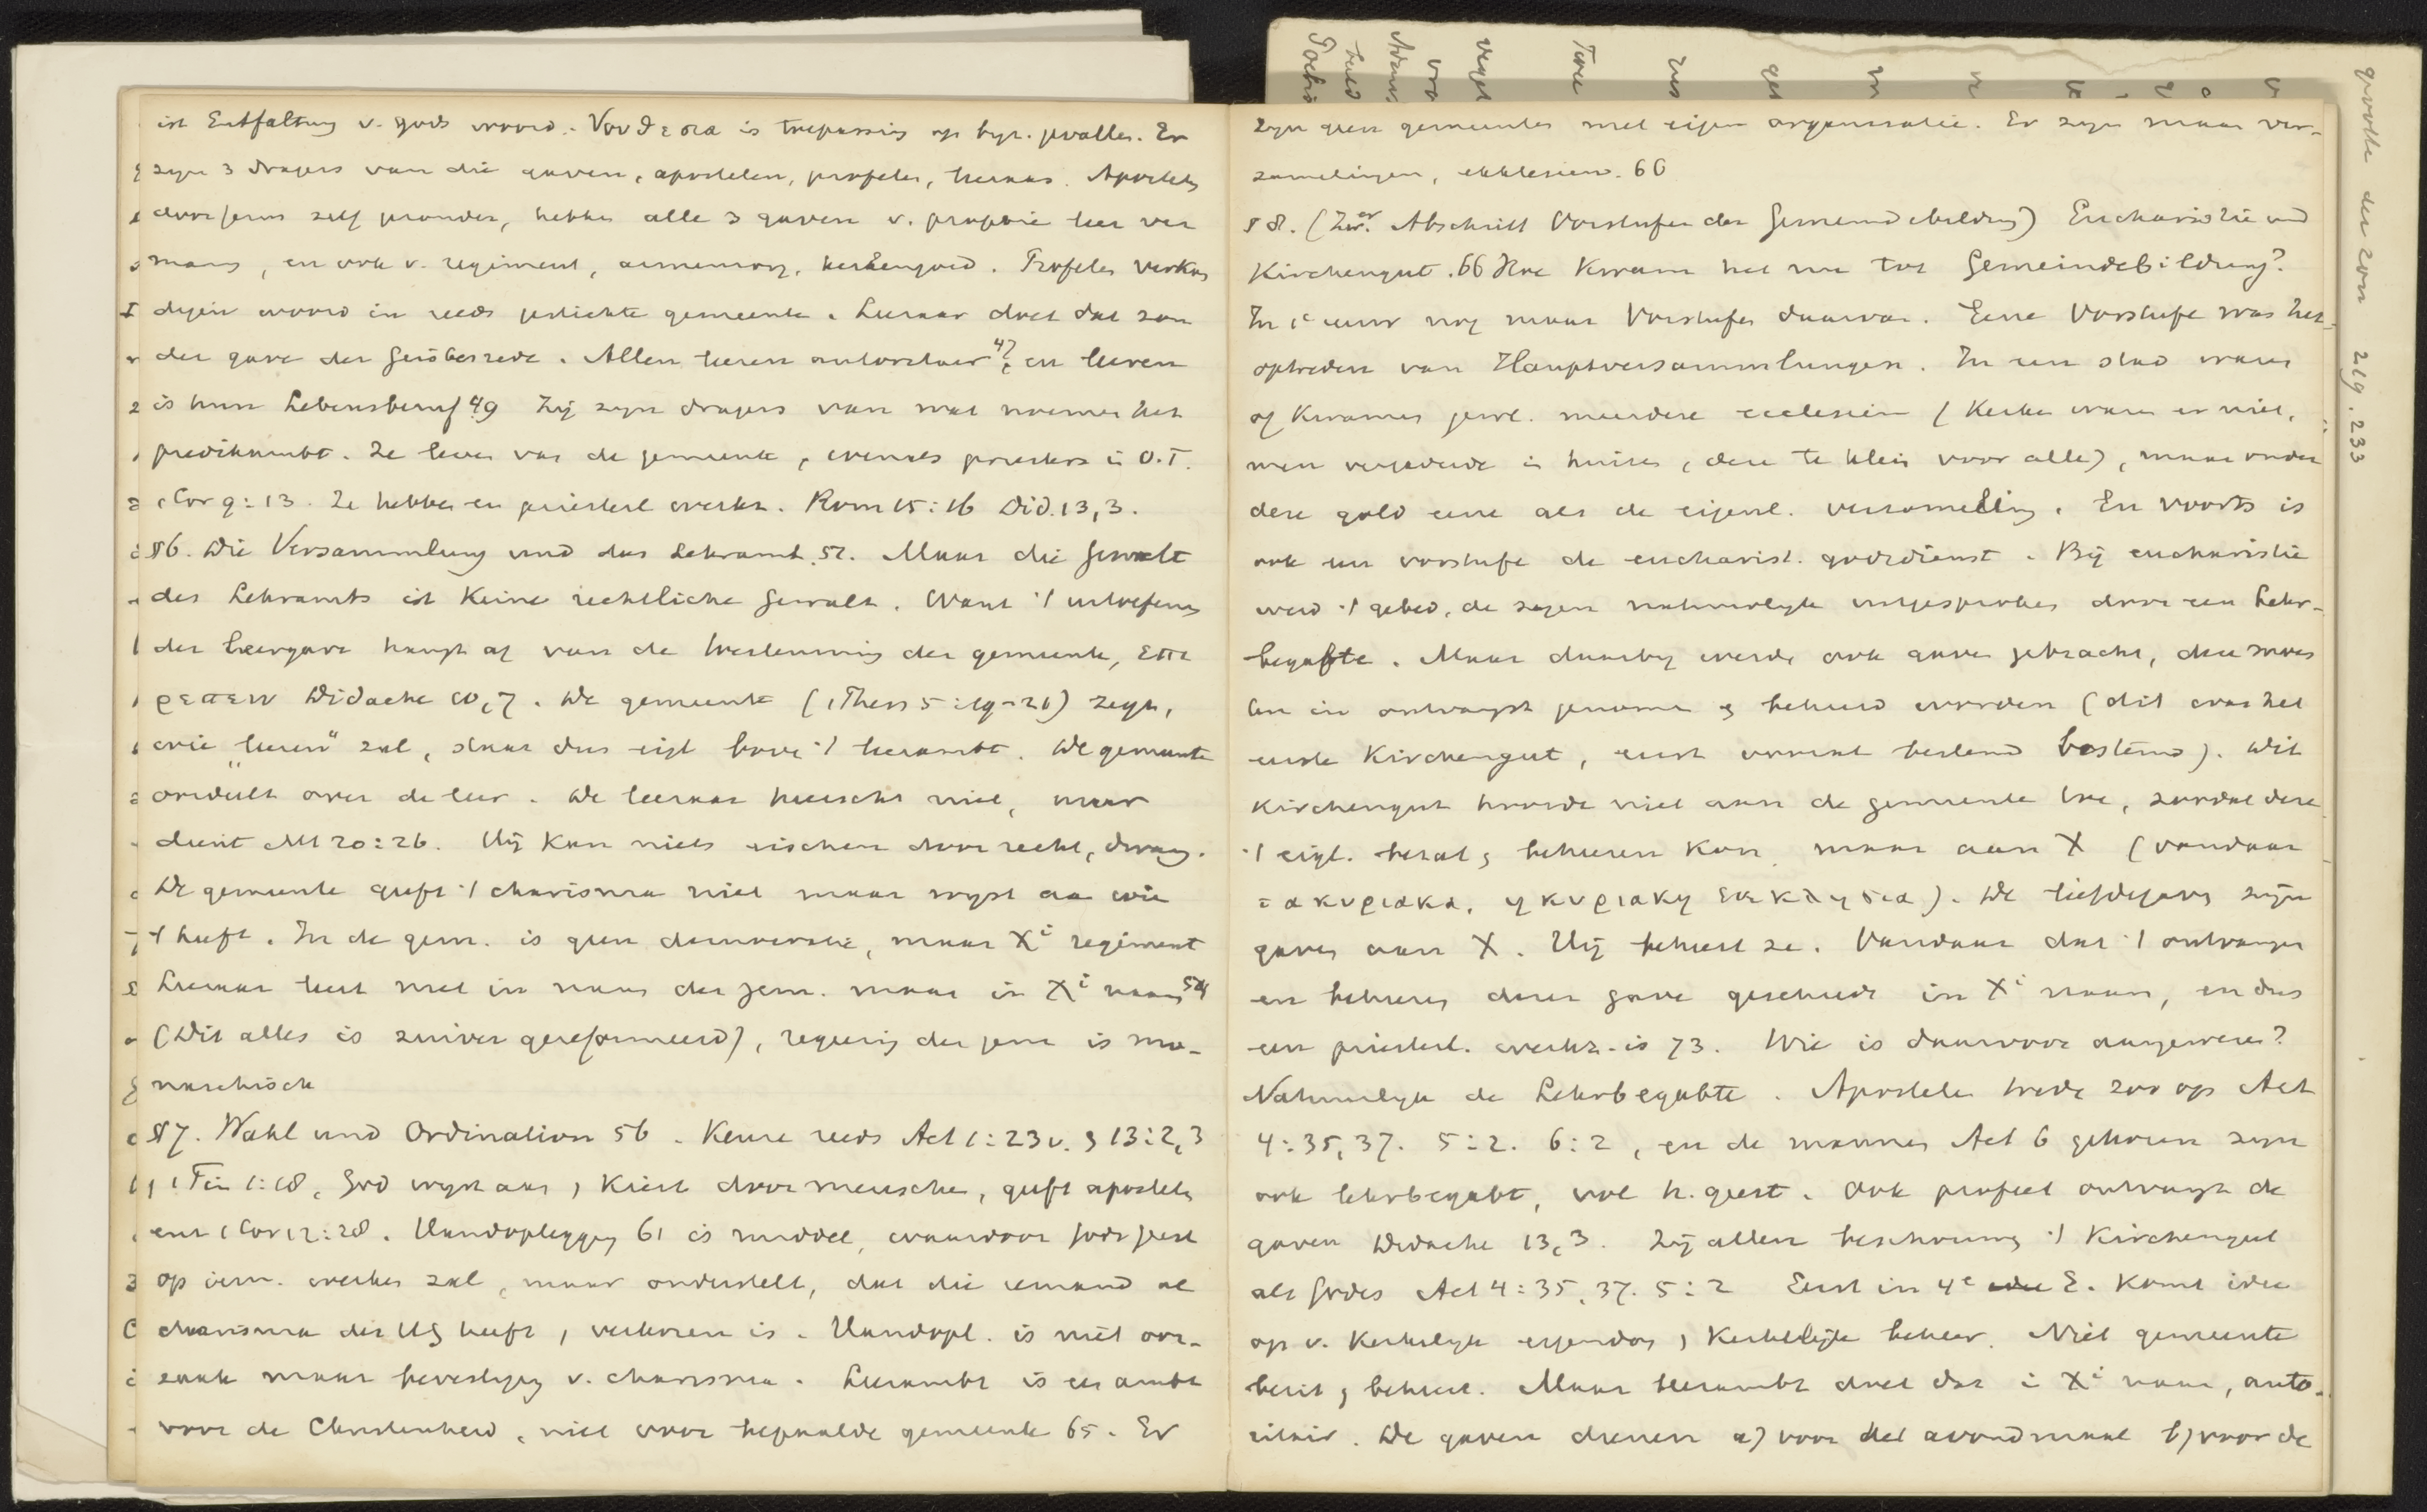 ist Entfaltung v. gods woord. Νουθεσια is toepassing op byz. gevallen. Er
zyn 3 dragers van die gaven, apostelen, profeten, leeraars. Apostels
door Jezus zelf gezonden, hebben alle 3 gaven v. profetie leer ver
maning, en ook v. regiment, armenzorg, kerkengoed. Profeten verkon
digen woord in reeds gestichte gemeente. Leeraar doet dat zon
der gave der Geistesrede. Allen leeren autoritair 47, en leeren
is hun Lebensberuf 49 Zij zyn dragers van wat noemen het
predikambt. Ze leven van de gemeente, evenals priesters in O.T.
1 Cor 9:13. Ze hebben een priesterl werkz. Rom 15:16 Did. 13,3.
§ 6. Die Versammlung und das Lehramt. 52. Maar die Gewalt
des Lehramts ist keine rechtliche Gewalt. Want 't uitoefenen
der leergave hangt af van de toestemming der gemeente, επιτ
ρεπειν Didache 10,7. De gemeente (1 Thess 5:19-21) zegt,
wie „leeren" zal, staat dus eigl boven 't leerambt. De gemeente
oordeelt over de leer. De leeraar heerscht niet, maar
dient Mt 20:26. Hij kan niets eischen door recht, dwang.
De gemeente geeft 't charisma niet maar wyst aan wie
't heeft. In de gem. is geen democratie, maar Xi regiment
Leeraar leert niet in naam der gem. maar in Xi naam 54
(Dit alles is zuiver gereformeerd), regering der gem is mo-
narchisch
§ 7. Wahl und Ordination 56. Keuze reeds Act 1:23v. & 13:2,3
1 Tim 1:18, God wyst aan, kiest door menschen, geeft apostels
enz 1 Cor 12:28. Handoplegging 61 is middel, waardoor Gods Geest
op iem. werken zal, maar onderstelt, dat die iemand al
charisma des HG heeft, verkoren is. Handopl. is niet oor-
zaak maar bevestiging v. charisma. Leerambt is een ambt
voor de Christenheid, niet voor bepaalde gemeente 65. Er
zyn geen gemeenten met eigen organisatie. Er zyn maar ver-
zamelingen, ekklesien. 66
§ 8. (Zwer. Abschnitt Vorstufen der Gemeindebildung) Eucharistie und
Kirchengut. 66 Hoe kwam het nu tot Gemeindebildung?
In 1e eeuw nog maar Vorstufen daarvan. Eene Vorstufe was het
optreden van Hauptversammlungen. In een stad waren
of kwamen gew. meerdere ecclesien (kerken waren er niet,
men vergaderde in huizen, deze te klein voor alle), maar onder
deze gold eene als de eigenl. verzameling. En voorts is
ook een vorstufe de eucharist. godsdienst. Bij eucharistie
werd 't gebed, de zegen natuurlyk uitgesproken door een Lehr-
begabte. Maar daarby werden ook gaven gebracht, deze moes
ten in ontvangst genomen & beheerd worden (dit was het
eerste Kirchengut, eerst vooral bestemd). Dit
Kirchengut hoorde niet aan de gemeente toe, zoodat deze
't eigl. bezat & beheeren kon, maar aan X (vandaar
τα κυριακα, η κυριακη εκκλησια). De liefdegaven zijn
gaven aan X. Hij beheert ze. Vandaar dat 't ontvangen
en beheeren dezer gave geschiedt in Xi naam, en dus
een priesterl. werkz. is 73. Wie is daarvoor aangewezen?
Natuurlyk de Lehrbegabte. Apostelen treden zoo op Act
4:35,37. 5:2. 6:2, en de mannen Act 6 gekozen zyn
ook lehrbegabt, vol h. geest. Ook profeet ontvangt de
gaven Didache 13,3. Zij allen beschouwen 't Kirchengut
als Gods Act 4:35,37. 5:2 Eerst in 4e E. komt idee
op v. kerkelyk eigendom, kerkelijk beheer. Niet gemeente
bezit & beheert. Maar leerambt doet dat in Xi naam, auto-
ritair. De gaven dienen a) voor het avondmaal b) voor de
grootte der zon 219. 233